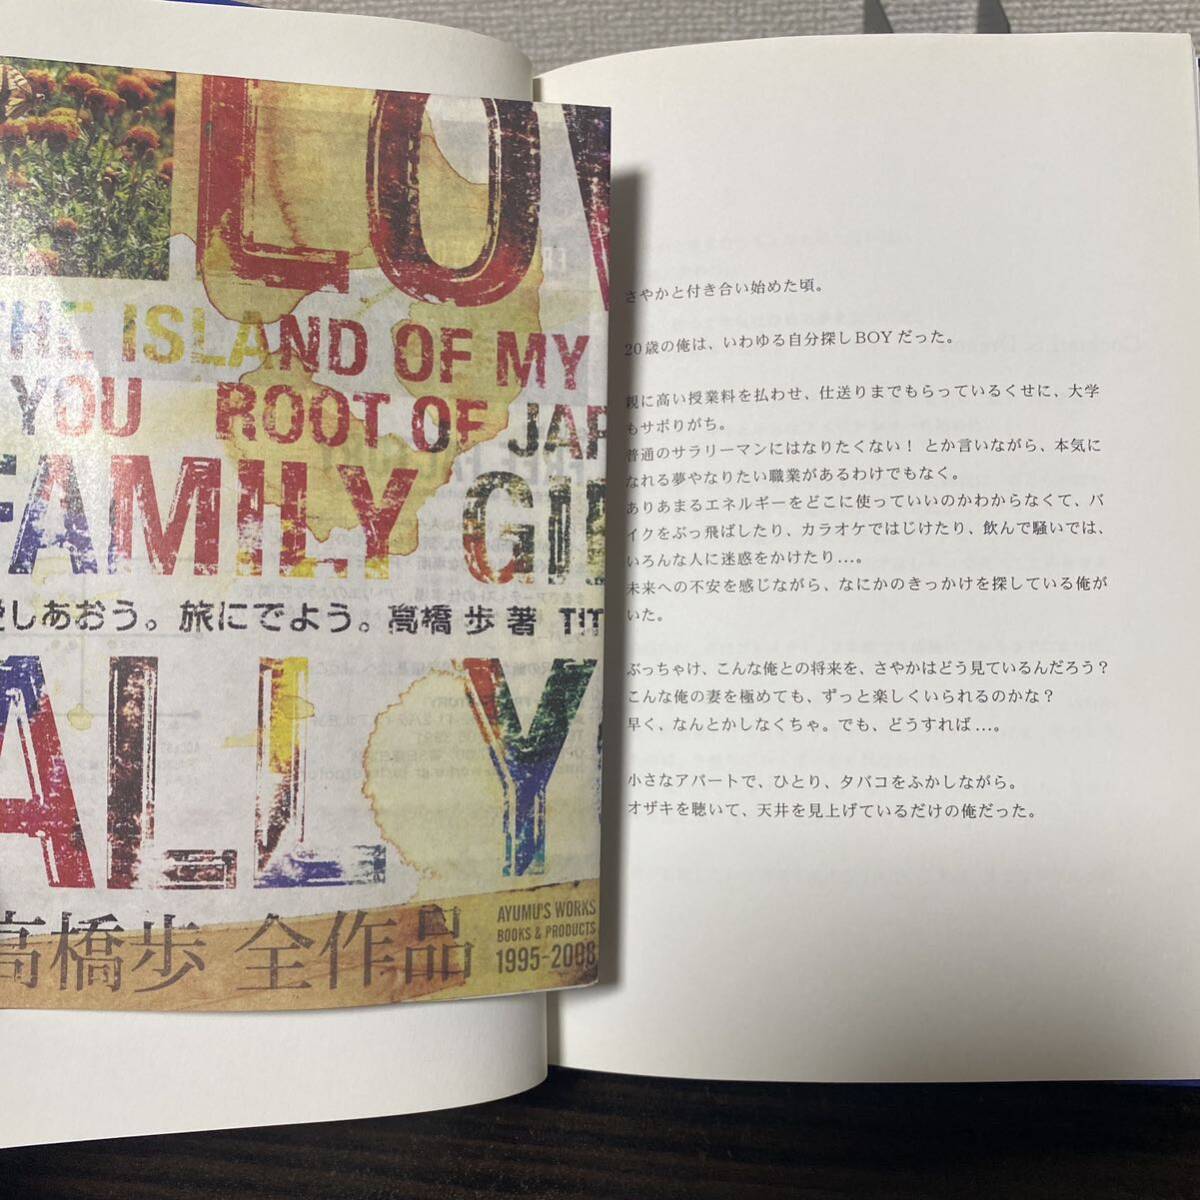 LOV
HE ISLAND OF MY
YOU ROOT OF JAP
FAMILY GI
愛しあおう。旅にでよう。高橋歩著 TIT
ALL Y
高橋歩 全作品
AYUMU'S WORKS
BOOKS & PRODUCTS
1995-2008
さやかと付き合い始めた頃。
20歳の俺は、いわゆる自分探しBOYだった。
親に高い授業料を払わせ、仕送りまでもらっているくせに、大学
もサボりがち。
普通のサラリーマンにはなりたくない！ とか言いながら、本気に
なれる夢やなりたい職業があるわけでもなく。
ありあまるエネルギーをどこに使っていいのかわからなくて、バ
イクをぶっ飛ばしたり、カラオケではじけたり、飲んで騒いでは、
いろんな人に迷惑をかけたり…。
未来への不安を感じながら、なにかのきっかけを探している俺が
いた。
ぶっちゃけ、こんな俺との将来を、さやかはどう見ているんだろう？
こんな俺の妻を極めても、ずっと楽しくいられるのかな？
早く、なんとかしなくちゃ。でも、どうすれば…。
小さなアパートで、ひとり、タバコをふかしながら。
オザキを聴いて、天井を見上げているだけの俺だった。